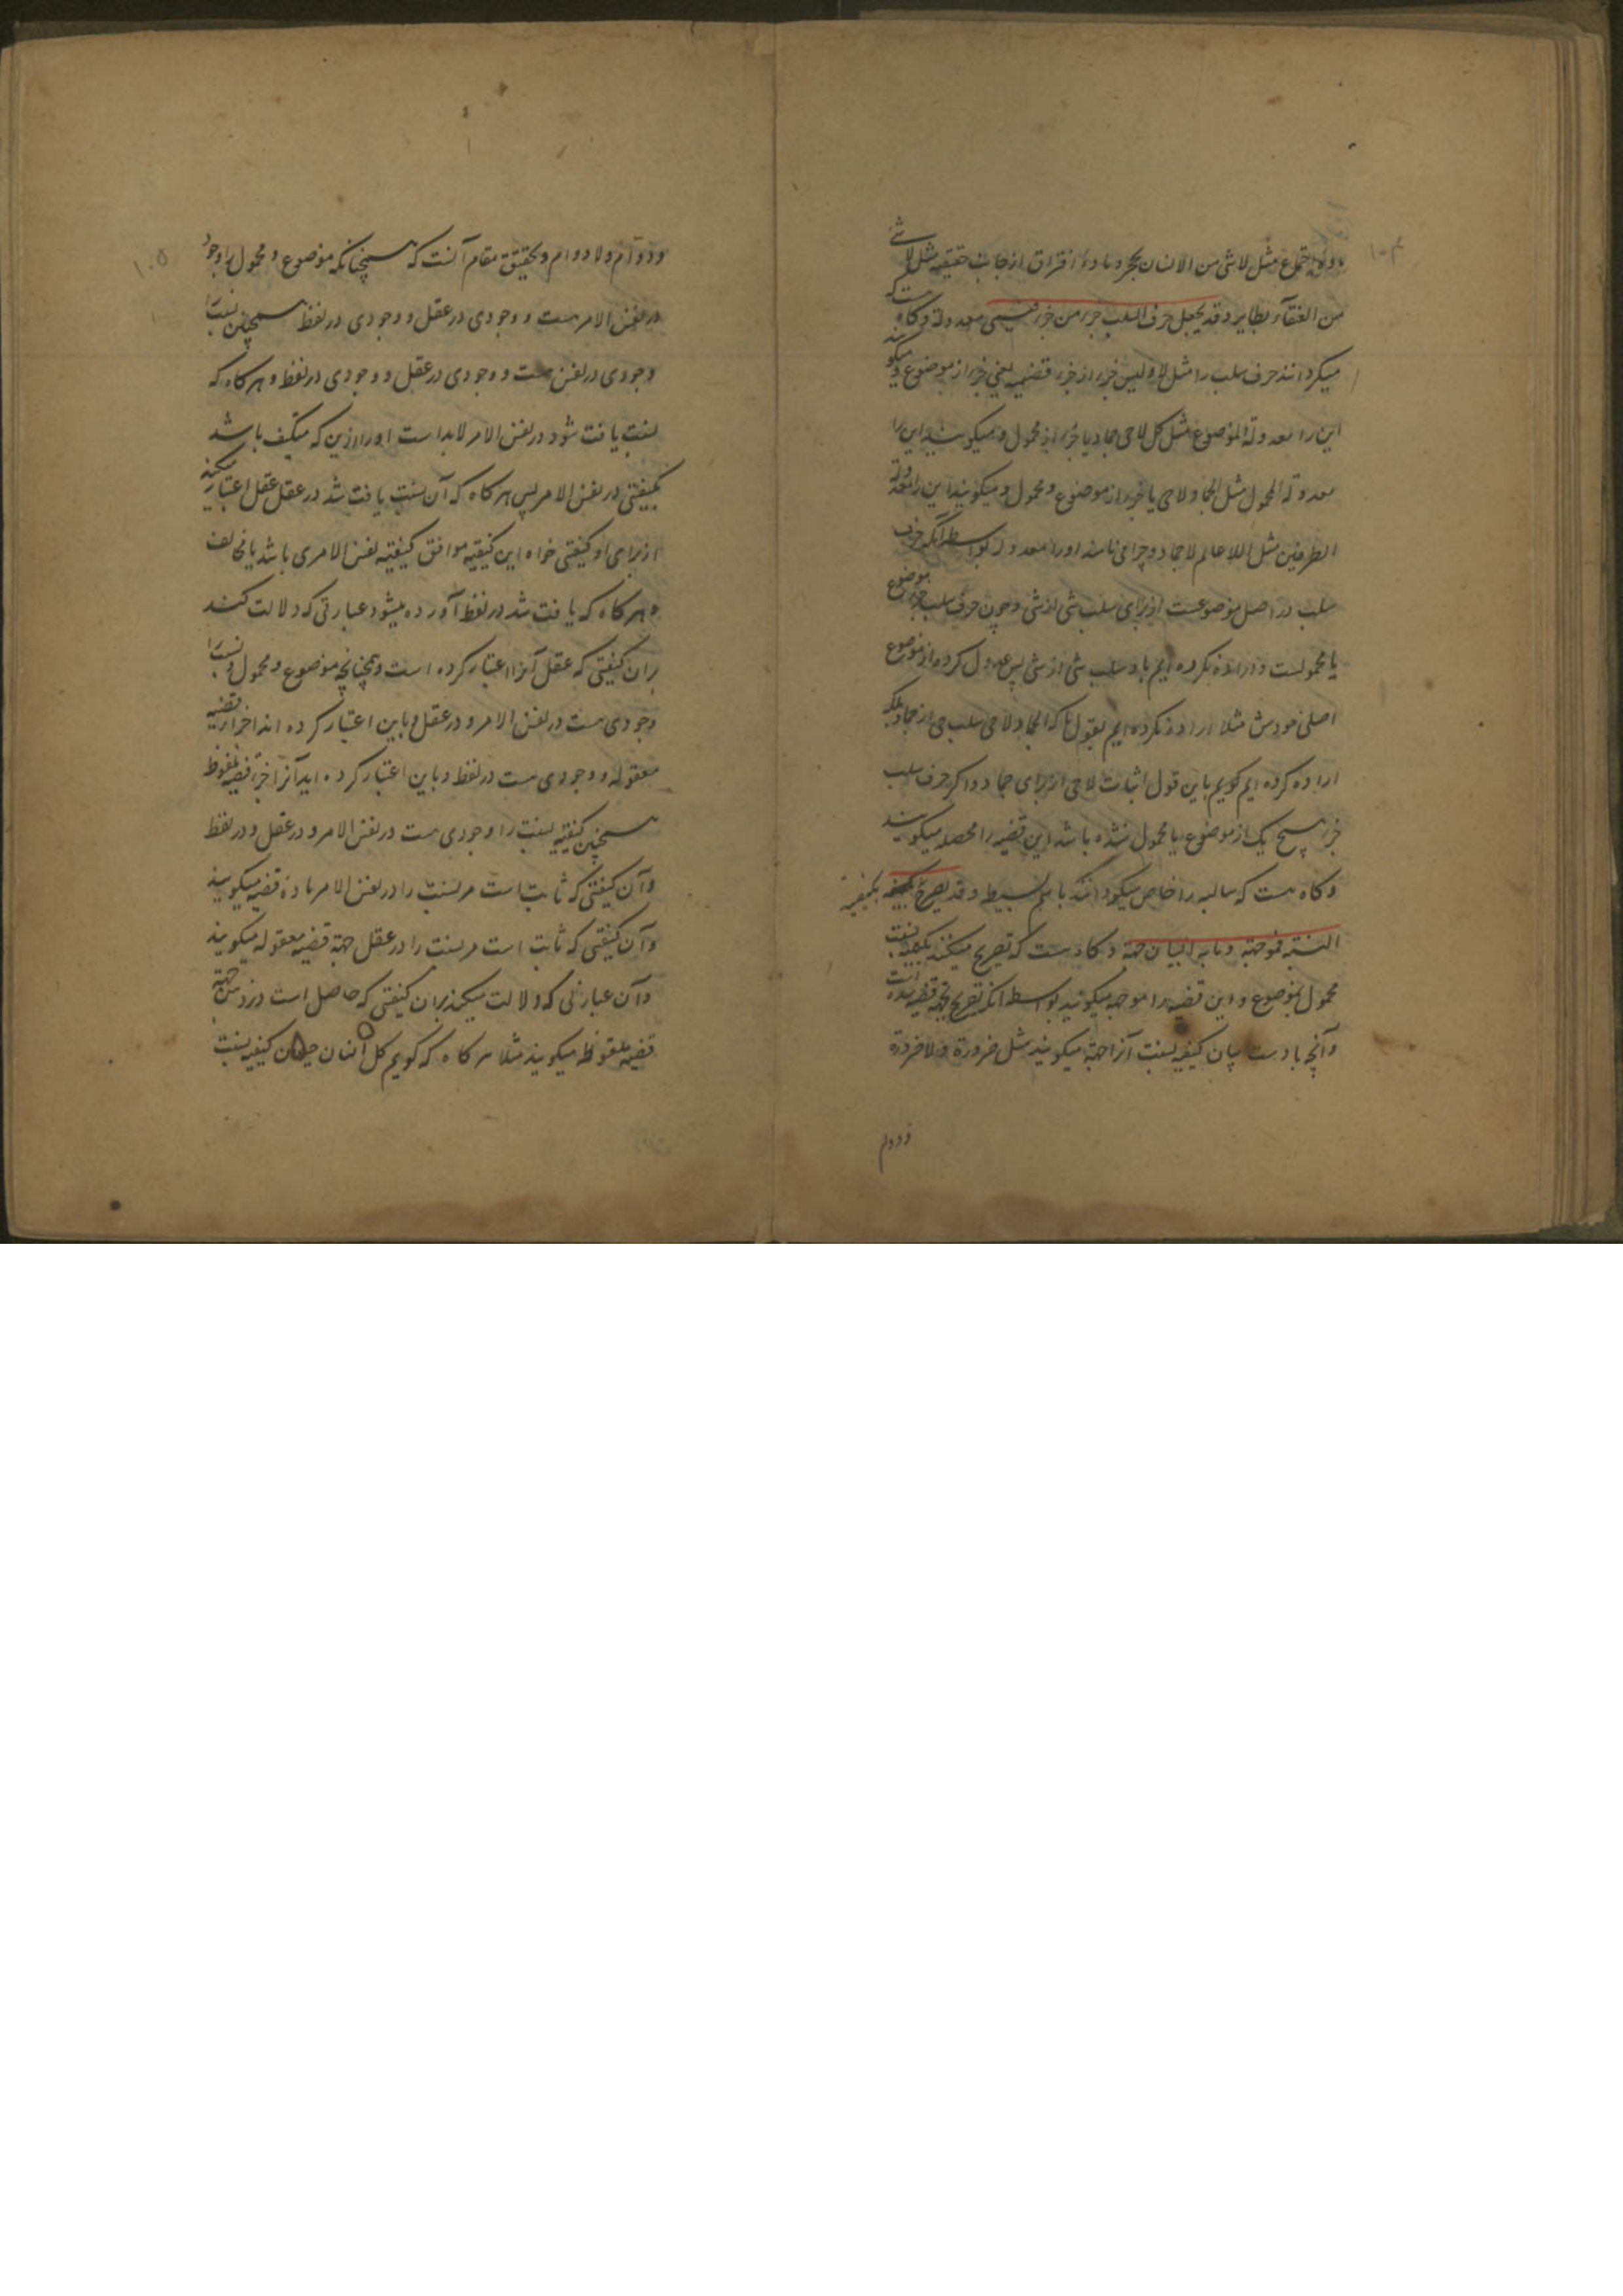 ۱۰۴
اجتماع مثل لا شی من الانسان بحجر و ماده افتراق از جانب حقیقیه مثل لا شئ
من العنقاء بطایر و قد یجعل حرف السلب جزء من جزء فیسمی معدولة و گاه هست که
میگردانند حرف سلب را مثل لا و لیس جزء از جزء قضیه یعنی جزء از موضوع و میگویند
این را معدولة الموضوع مثل کل لا حی جماد یا جزء از محمول و میگویند این را
معدولة المحمول مثل الجماد لا حی یا جزء از موضوع و محمول و میگویند این را معدولة
الطرفین مثل اللا عالم لا جماد و چرا می نامند او را معدوله بواسطه آنکه حرف
سلب در اصل موضوعست از برای سلب شی از شی و چون حرف سلب جزء موضوع
یا محمولست و اراده نکرده ایم باو سلب شی از شی پس عدول کرده از موضوع
اصلی خودش مثلا اراده نکرده ایم بقول ما که الجماد لا حی سلب حی از جماد بلکه
اراده کرده ایم گوییم باین قول اثبات لا حی از برای جماد و اگر حرف سلب
جزء هیچ یک از موضوع یا محمول نشده باشد این قضیه را محصله میگویند
و گاه هست که سالبه را خاص میگردانند باسم بسیطه و قد یصرح بکیفیة
النسبة فموجهة و ما به البیان جهة و گاه هست که تصریح میکنند بکیفیه نسبت
محمول بموضوع و این قضیه را موجهه میگویند بواسطه آنکه تصریح بجهة قضیه شده است
و آنچه باوست بیان کیفیه نسبت آنرا جهة میگویند مثل ضرورة و لا ضرورة
و دوام
۱۰۵
و دوام و لا دوام و تحقیق مقام آنست که همچنانکه موضوع و محمول را وجود
در نفس الامر هست و وجودی در عقل و وجودی در لفظ همچنین نسبت را
وجودی در نفس هست و وجودی در عقل و وجودی در لفظ و هر گاه که
نسبت یافت شود در نفس الامر لابد است او را ازین که متکیف باشد
بکیفیتی در نفس الامر پس هر گاه که آن نسبت یافت شد در عقل عقل اعتبار میکند
از برای او کیفیتی خواه این کیفیة موافق کیفیة نفس الامری باشد یا مخالف
و هر گاه که یافت شد در لفظ آورده میشود عبارتی که دلالت کند
بران کیفیتی که عقل آنرا اعتبار کرده است و همچنانچه موضوع و محمول و نسبت را
وجودی هست در نفس الامر و در عقل و باین اعتبار کرده اند اجزاء قضیه
معقوله و وجودی هست در لفظ و باین اعتبار کرده اید آنرا جزء قضیه ملفوظ
همچنین کیفیة نسبت را وجودی هست در نفس الامر و در عقل و در لفظ
و آن کیفیتی که ثابت است مر نسبت را در نفس الامر ماده قضیه میگویند
و آن کیفیتی که ثابت است مر نسبت را در عقل جهة قضیه معقوله میگویند
و آن عبارتی که دلالت میکند بران کیفیتی که حاصل است در ذهن جهة
قضیه ملفوظ میگویند مثلا هر گاه که گویم کل انسان حیوان کیفیه نسبت